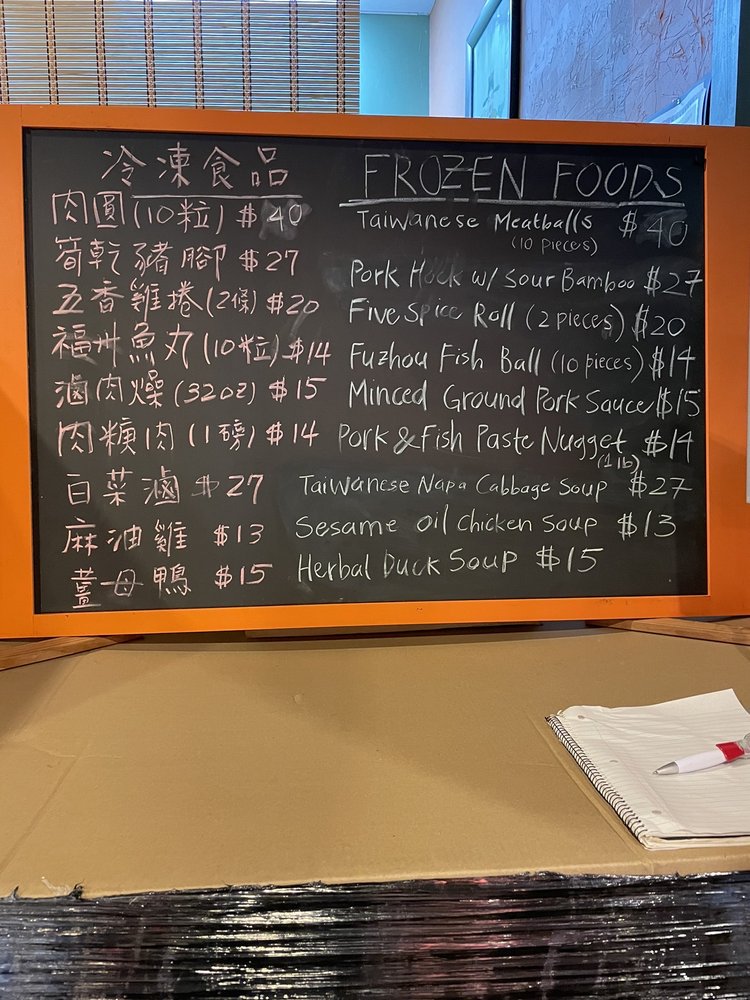 冷凍食品 FROZEN FOODS
肉圓(10粒) $40 Taiwanese Meatballs $40
(10 pieces)
筍乾豬腳 $27 Pork Hock w/ Sour Bamboo $27
五香雞捲(2條) $20 Five Spice Roll (2 pieces) $20
福州魚丸(10粒) $14 Fuzhou Fish Ball (10 pieces) $14
滷肉燥(32oz) $15 Minced Ground Pork Sauce $15
肉羹肉(1磅) $14 Pork & Fish Paste Nugget $14
(1 lb)
白菜滷 $27 Taiwanese Napa Cabbage Soup $27
麻油雞 $13 Sesame oil Chicken Soup $13
薑母鴨 $15 Herbal Duck Soup $15